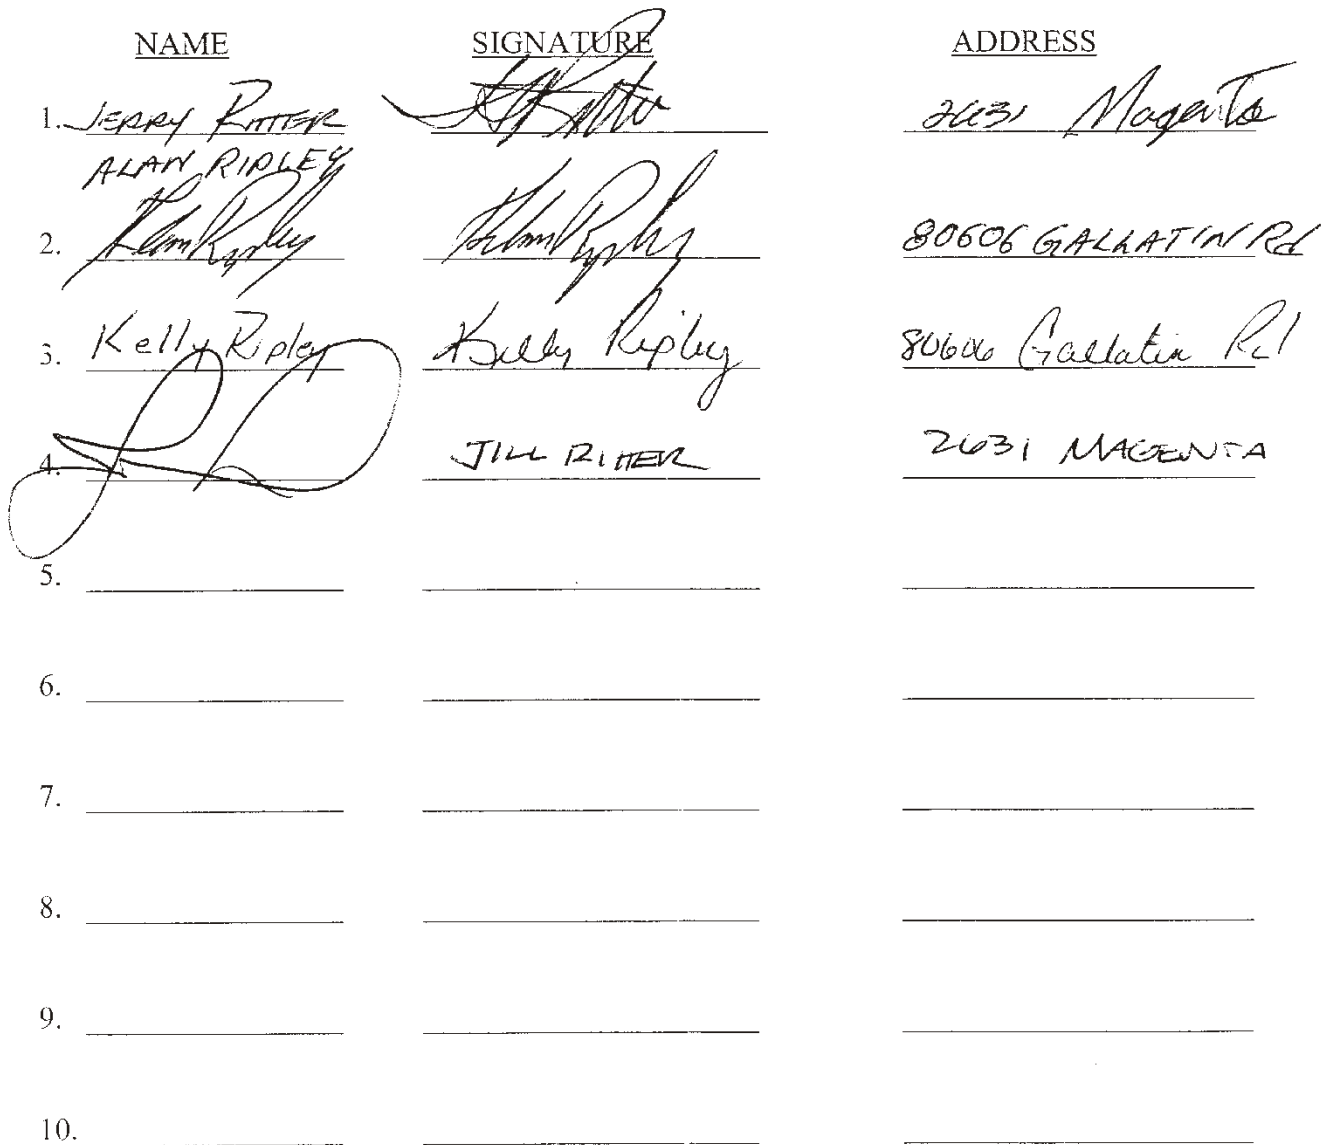 NAME SIGNATURE ADDRESS
1. JERRY RITTER 2631 Magenta
ALAN RIPLEY
2. Alan Ripley Alan Ripley 80606 GALLATIN Rd
3. Kelly Ripley Kelly Ripley 80606 Gallatin Rd
4. JILL RITTER 2631 MAGENTA
5.
6.
7.
8.
9.
10.